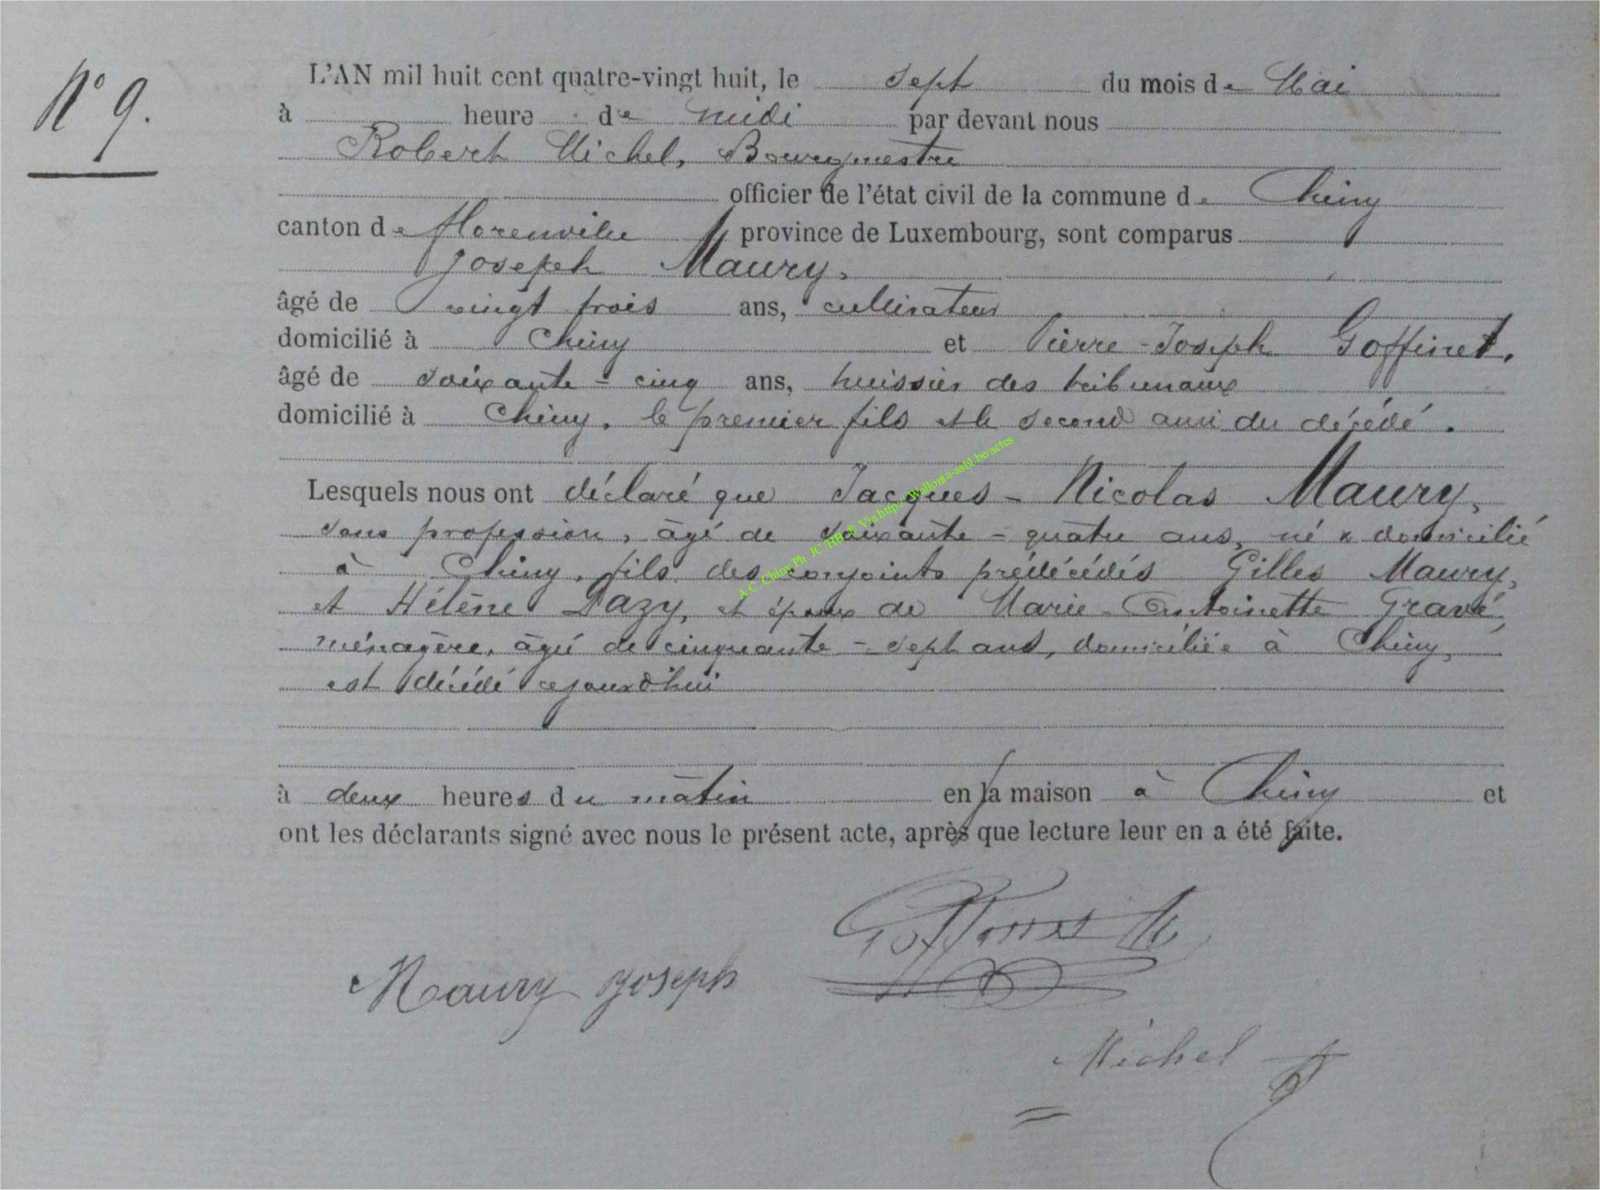 N° 9.
L'AN mil huit cent quatre-vingt huit, le sept du mois de Mai
à heure de midi par devant nous
Robert Michel, Bourgmestre
officier de l'état civil de la commune de Chiny
canton de Florenville province de Luxembourg, sont comparus
Joseph Maury,
âgé de vingt trois ans, cultivateur
domicilié à Chiny et Pierre-Joseph Goffinet,
âgé de soixante-cinq ans, huissier des tribunaux
domicilié à Chiny, le premier fils et le second ami du décédé.
Lesquels nous ont déclaré que Jacques-Nicolas Maury,
sans profession, âgé de soixante-quatre ans, né & domicilié
à Chiny, fils des conjoints prédécédés Gilles Maury,
et Hélène Dazy, et époux de Marie-Antoinette Gravé,
ménagère, âgée de cinquante-sept ans, domiciliée à Chiny,
est décédé cejourd'hui
à deux heures du matin en sa maison à Chiny et
ont les déclarants signé avec nous le présent acte, après que lecture leur en a été faite.
Goffinet
Maury Joseph
Michel